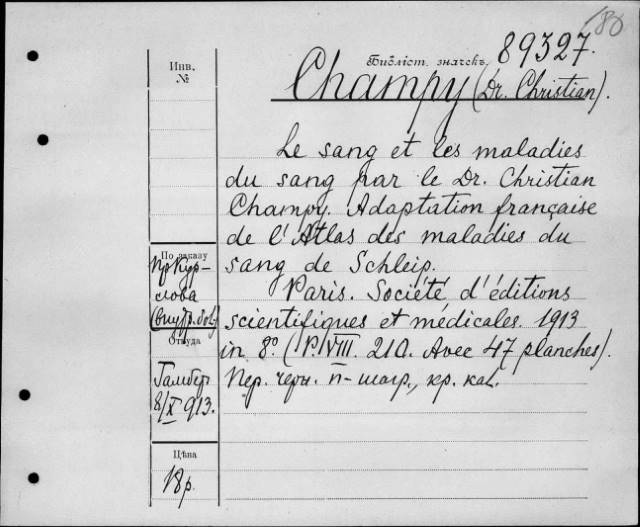 180
Инв.
№
Библіот. значекъ. 89327.
Champy (Dr. Christian).
Le sang et les maladies
du sang par le Dr. Christian
Champy. Adaptation française
de l'Atlas des maladies du
sang de Schleip.
Paris. Société d'éditions
scientifiques et médicales. 1913
in 8º. (P. VIII. 210. Avec 47 planches).
Пер. черн. п-шагр., кр. кал.
По заказу
пр Кур-
лова
(внутр. бол)
Откуда
Гамбер
8/X 913.
Цѣна
18 р.